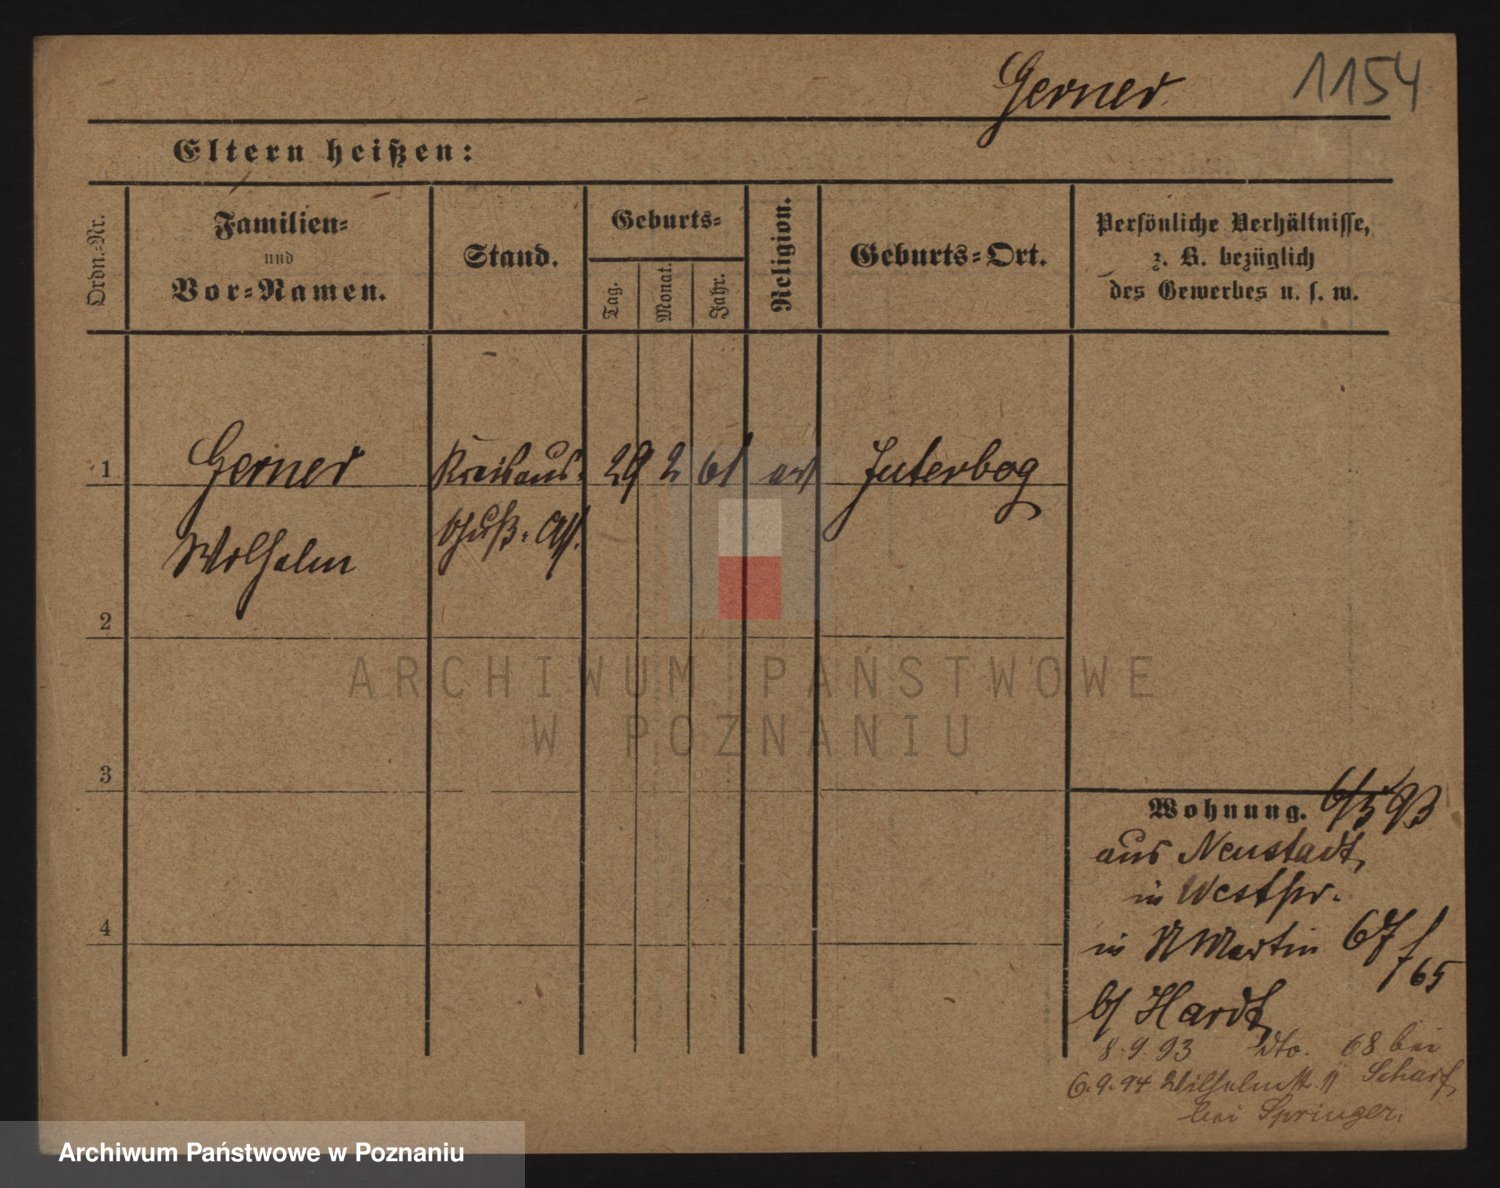 Gerner 1154
Eltern heißen:
Ordn.-Nr.
Familien-
und
Vor-Namen.
Stand.
Geburts-
Tag.
Monat.
Jahr.
Religion.
Geburts-Ort.
Persönliche Verhältnisse,
z. B. bezüglich
des Gewerbes u. s. w.
1 Gerner Kreisaus- 29 2 61 Juterbog
Wilhelm schuß-
2
ARCHIWUM PAŃSTWOWE
W POZNANIU
3
Wohnung. 6/5 93
aus Neustadt,
in Westpr.
in Martin 67/65
b/ Hardt
8.9.93 dto. 68 bei
Scharf
6.9.94 Wilhelmstr. 11
bei Springer.
4
Archiwum Państwowe w Poznaniu